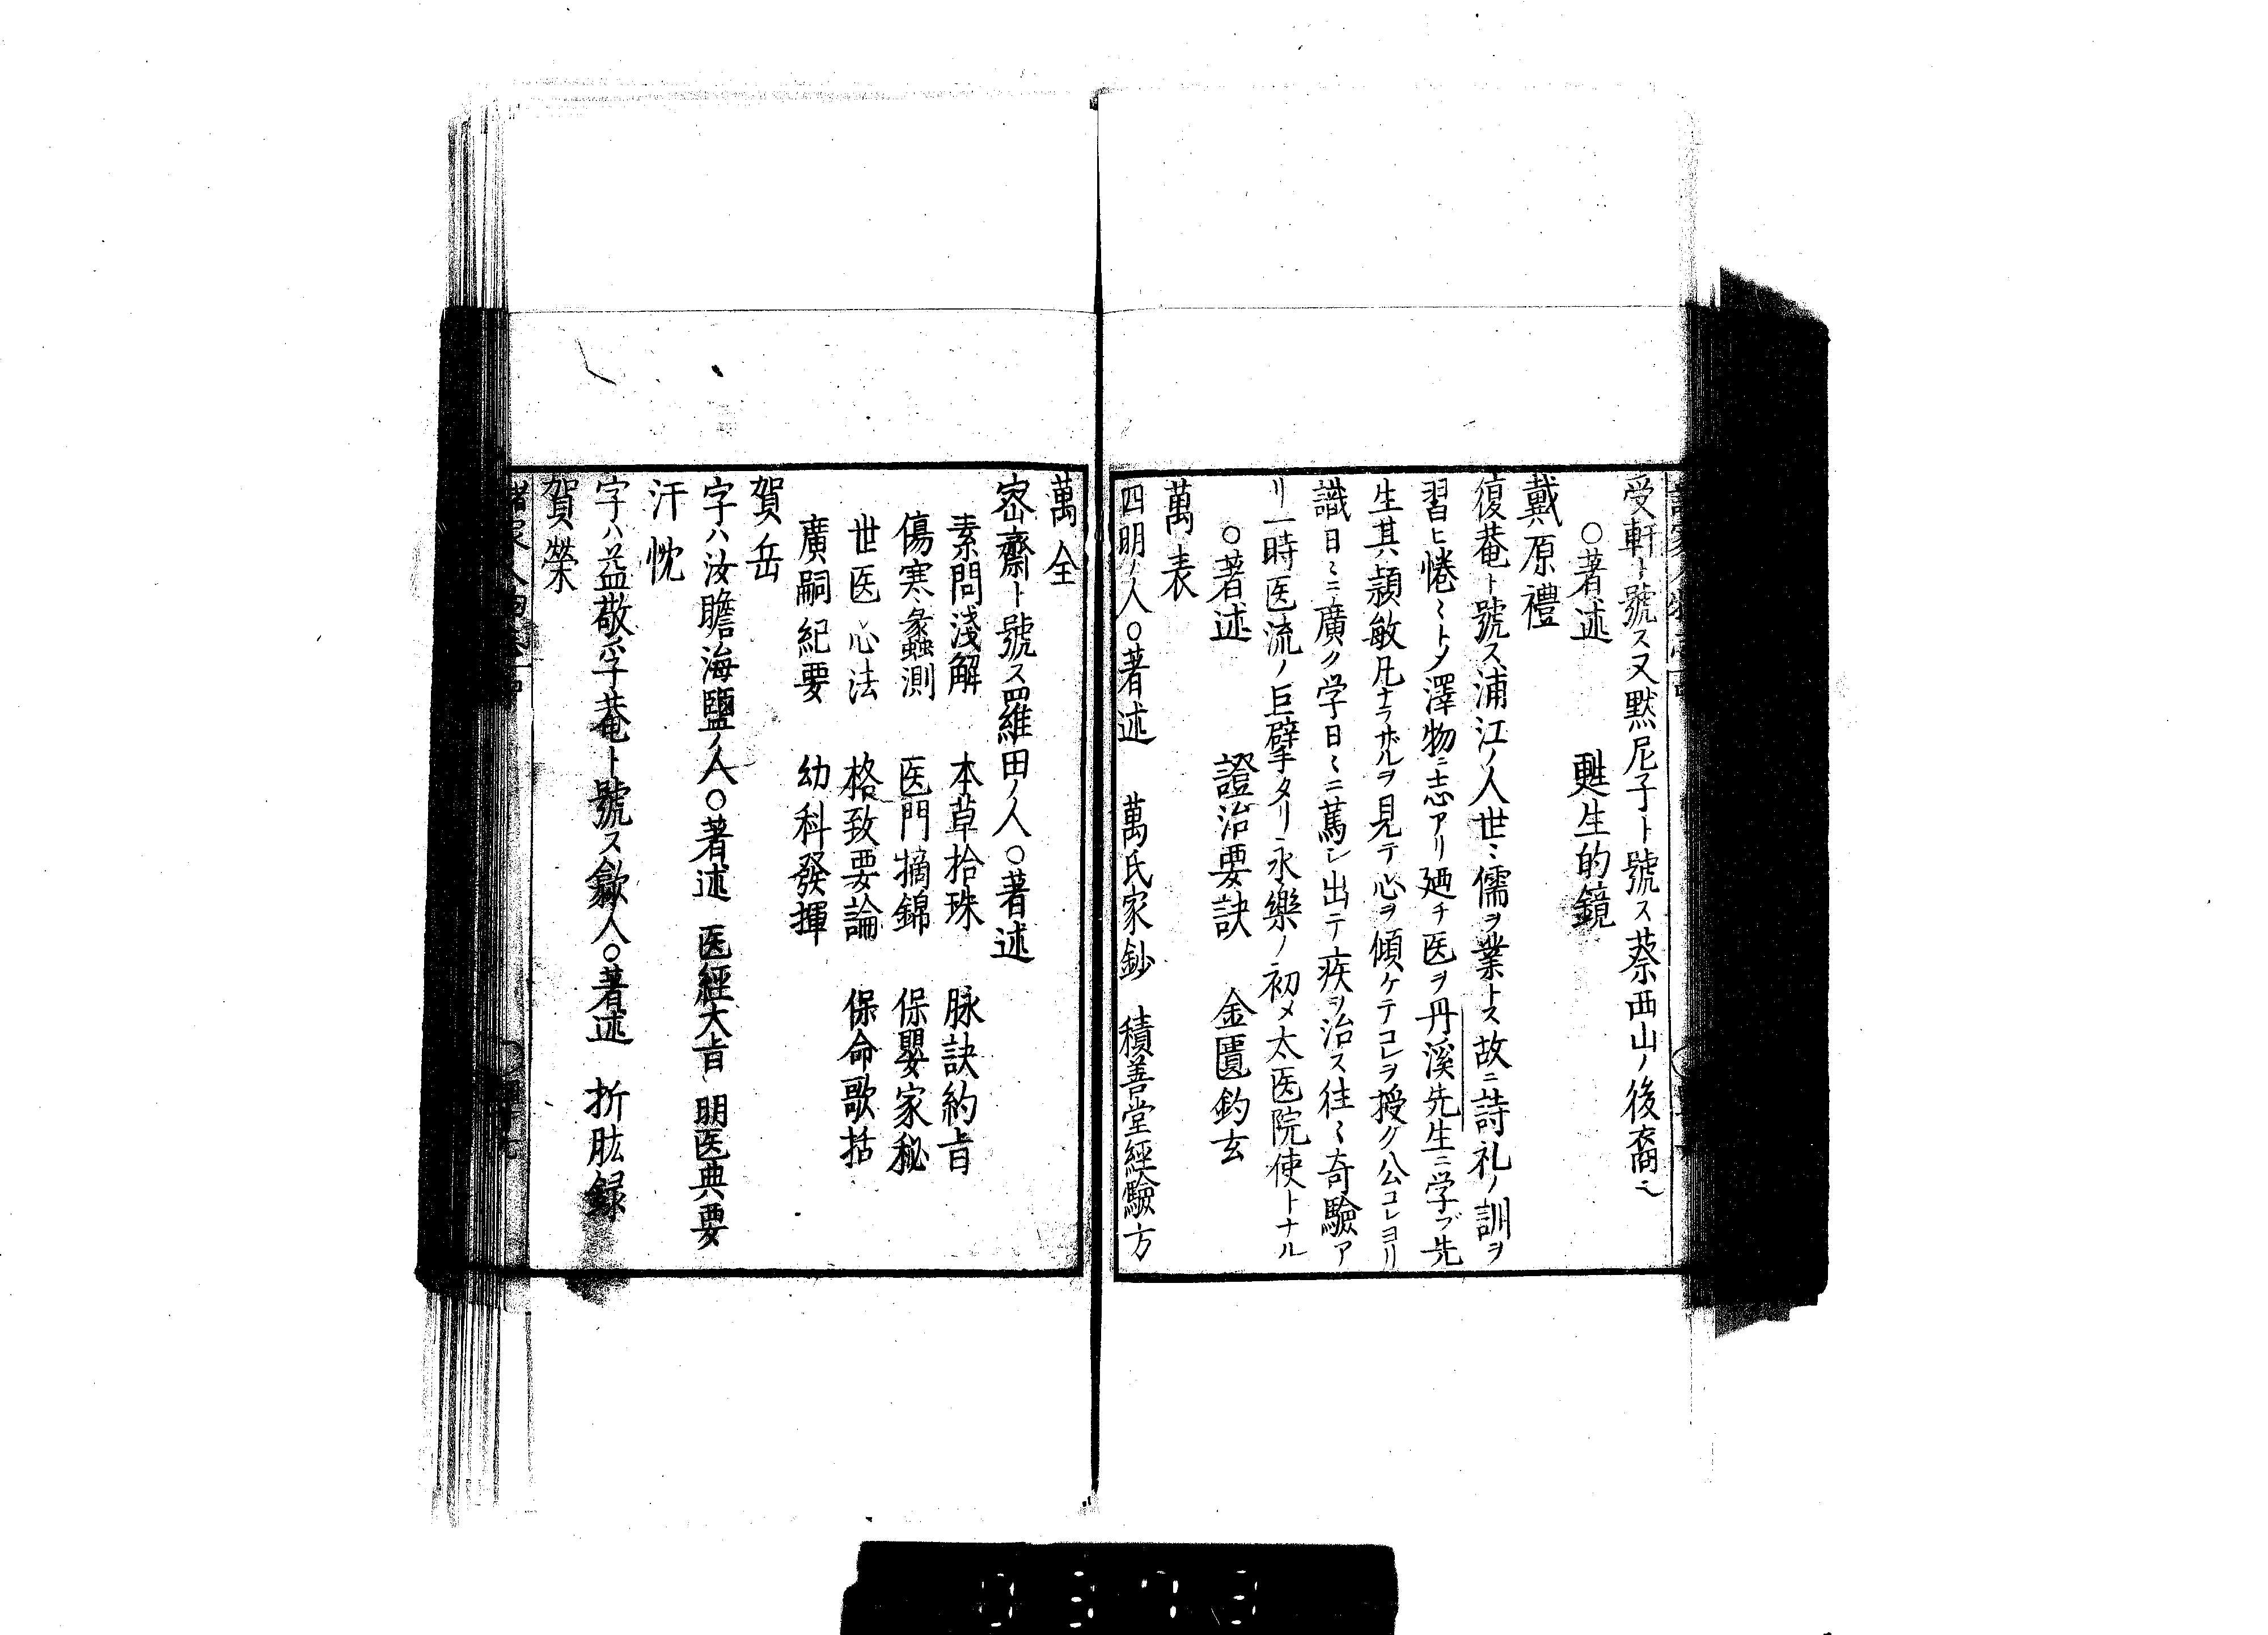 受軒ト號ス又黙尼子ト號ス蔡西山ノ後裔也
○著述　甦生的鏡
戴原禮
復菴ト號ス浦江ノ人世〻儒ヲ業トス故ニ詩礼ノ訓ヲ
習ヒ惓〻トメ澤物ニ志アリ廼チ医ヲ丹溪先生ニ学ブ先
生其頴敏凡ナラザルヲ見テ心ヲ傾ケテコレヲ授ク公コレヨリ
識日〻ニ廣ク学日〻ニ篤シ出テ疾ヲ治ス往〻奇驗ア
リ一時医流ノ巨擘タリ永樂ノ初メ太医院使トナル
○著述　證治要訣　金匱釣玄
萬表
四明ノ人○著述　萬氏家鈔　積善堂經驗方
萬全
宻齋ト號ス羅田ノ人○著述
素問淺解　本草拾珠　脉訣約旨
傷寒蠡測　医門摘錦　保嬰家秘
世医心法　格致要論　保命歌括
廣嗣紀要　幼科發揮
賀岳
字ハ汝瞻海鹽ノ人○著述　医經大旨　明医典要
汗忱
字ハ益敬孚菴ト號ス歙人○著述　折肱録
賀榮